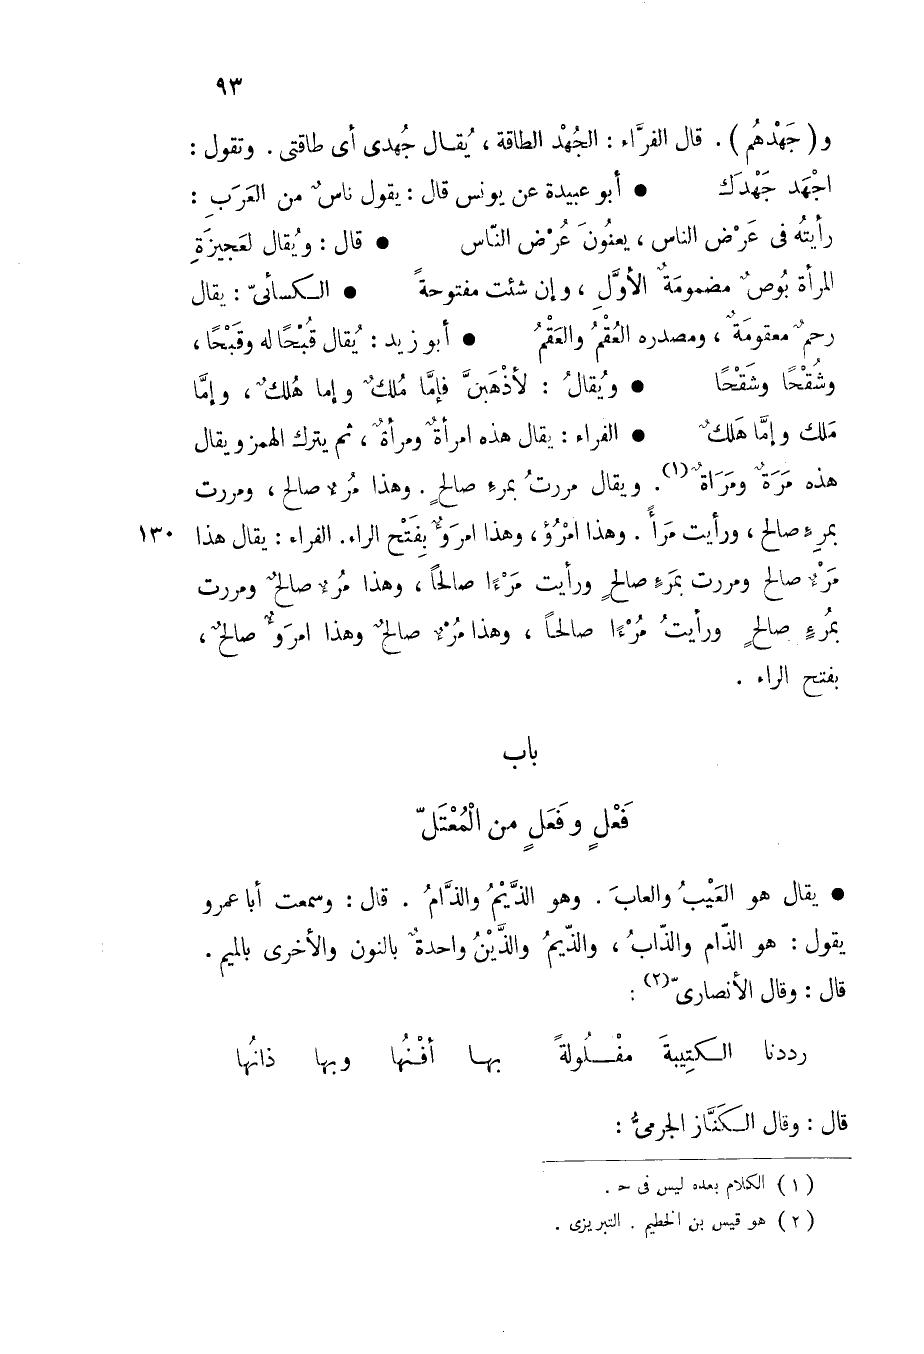 ٩٣
و (جَهْدهُم). قال الفرَّاء : الجُهْد الطاقة ، يُقال جُهدى أى طاقتى . وتقول :
اجْهَد جَهْدَك ● أبو عبيدة عن يونس قال : يقول ناسٌ من العَرَبِ :
رأيتُه فى عَرْض الناس ، يعنُونَ عُرْض النّاس ● قال : ويُقال لعَجيزَةِ
المرأة بُوصٌ مضمومَةُ الأوَّلِ ، وإن شئت مفتوحةً ● الكسائىّ : يقال
رحمٌ معقومَةٌ ، ومصدره العُقْمُ والعَقْمُ ● أبو زيد : يُقال قُبْحًا له وقَبْحًا ،
وشُقْحًا وشَقْحًا ● ويُقالُ : لأذْهَبَنَّ فإمَّا مُلكٌ وإما هُلكٌ ، وإمَّا
مَلك وإمَّا هَلكٌ ● الفراء : يقال هذه امرأةٌ ومرأةٌ ، ثم يترك الهمز ويقال
هذه مَرَةٌ ومَرَاةٌ(١). ويقال مررتُ بمرءِ صالحٍ . وهذا مُرءٌ صالح ، ومررت
بمرِءٍ صالح ، ورأيت مَرأً . وهذا امْرُؤ ، وهذا امرَؤٌ بِفَتْح الراء. الفراء : يقال هذا ١٣٠
مَرْءٌ صالح ومررت بمَرءِ صالحٍ ورأيت مَرْءًا صالحًا ، وهذا مُرءٌ صالحٌ ومررت
بمُرءٍ صالحٍ ورأيتُ مُرْءًا صالحاً ، وهذا مُرْءٌ صالحٌ وهذا امرَؤٌ صالحٌ ،
بفتح الراء .
باب
فَعْلٍ وفَعَلٍ من الْمُعْتَلّ
● يقال هو العَيْبُ والعابَ . وهو الذَّيْمُ والذَّامُ . قال : وسمعت أبا عمرو
يقول : هو الذّام والذّابُ ، والذّيمُ والذَّيْنُ واحدةٌ بالنون والأخرى بالميم .
قال : وقال الأنصارىّ(٢) :
رددنا الكتِيبةَ مفْلُولةً بها أفْنُها وبها ذانُها
قال : وقال الكَنَّاز الجرمىُّ :
(١) الكلام بعده ليس فى ح .
(٢) هو قيس بن الخطيم . التبريزى .